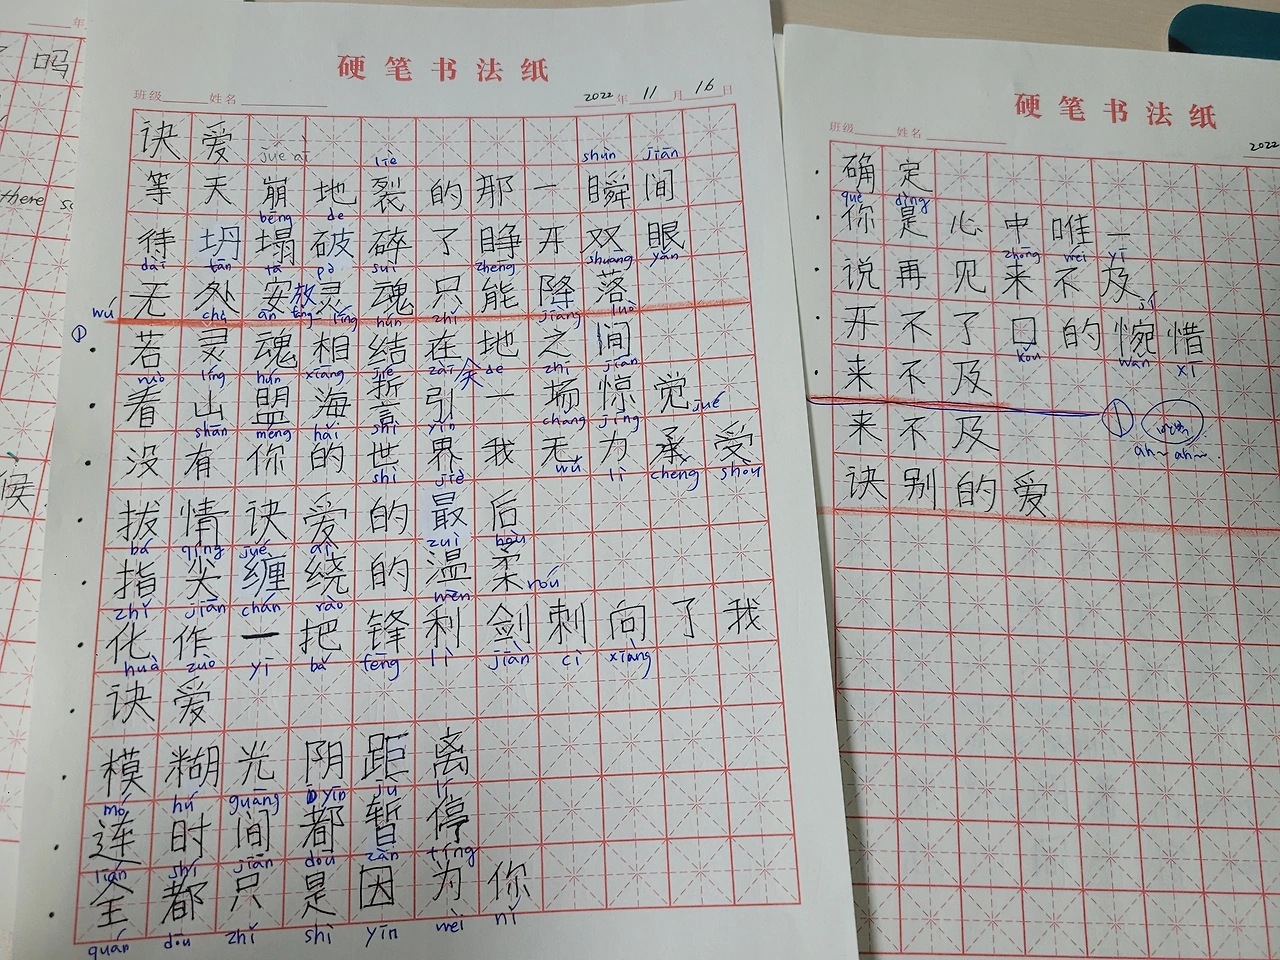 吗
there
候
硬笔书法纸
班级 姓名 2022年 11月 16日
诀爱
jué ài liè shùn jiān
等天崩地裂的那一瞬间
bēng de
待坍塌破碎了睁开双眼
dài tān tā pò suì zhēng shuāng yǎn
无处安放灵魂只能降落
wú chù ān fàng líng hún zhǐ jiàng luò
① 若灵魂相结在天地之间
ruò líng hún xiāng jié zài de zhī jiān
看山盟海誓引一场惊觉
shān méng hǎi shì yǐn chang jīng jué
没有你的世界我无力承受
shì jiè wú lì chéng shòu
拔情诀爱的最后
bá qíng jué ài zuì hòu
指尖缠绕的温柔
zhǐ jiān chán rào wēn róu
化作一把锋利剑刺向了我
huà zuò yī bǎ fēng lì jiàn cì xiàng
诀爱
模糊光阴距离
mó hú guāng yīn jù lí
连时间都暂停
lián shí jiān dōu zàn tíng
全都只是因为你
quán dōu zhǐ shì yīn wèi nǐ
硬笔书法纸
班级 姓名 2022
确定
què dìng
你是心中唯一
zhōng wéi yī
说再见来不及
jí
开不了口的惋惜
kǒu wǎn xī
来不及
来不及 ① ah~ ah~
诀别的爱